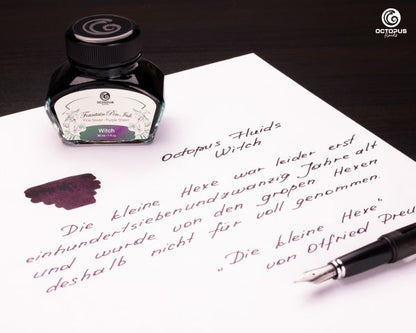 OCTOPUS
fluids
OCTOPUS
Fountain Pen Ink
Witch
Octopus Fluids
Witch
Die kleine Hexe war leider erst
einhundertsiebenundzwanzig Jahre alt
und wurde von den großen Hexen
deshalb nicht für voll genommen.
„Die kleine Hexe“
von Otfried Preu